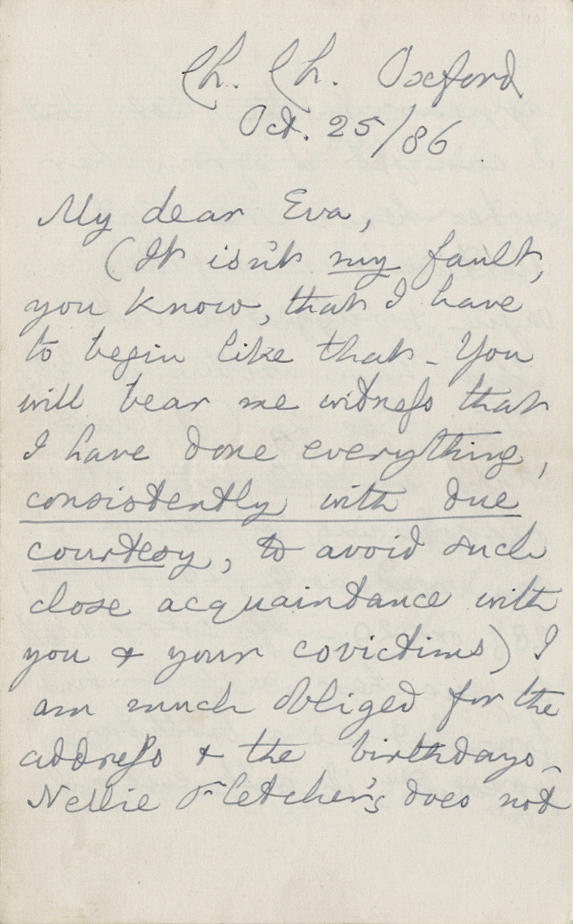 Ch. Ch. Oxford
Oct. 25/86
My dear Eva,
(It isn't my fault,
you know, that I have
to begin like that - You
will bear me witness that
I have done everything,
consistently with due
courtesy, to avoid such
close acquaintance with
you & your covictims) I
am much obliged for the
address & the birthdays -
Nellie Fletcher's does not